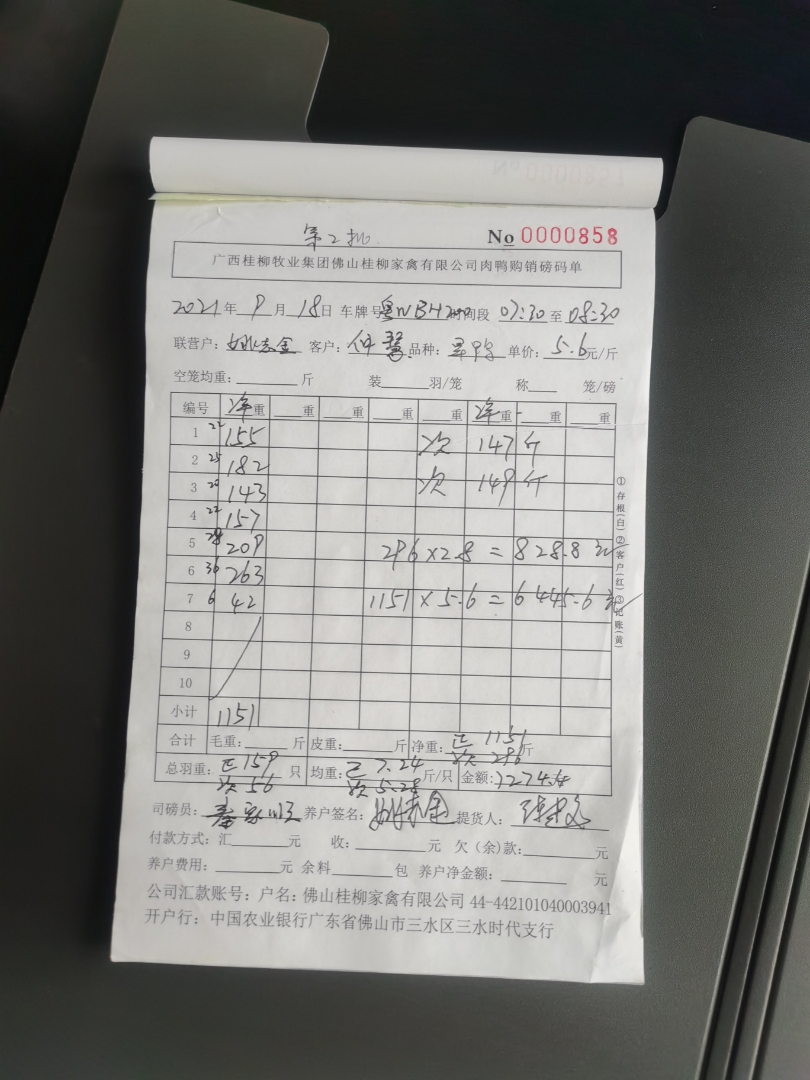 第2批
No 0000858
广西桂柳牧业集团佛山桂柳家禽有限公司肉鸭购销磅码单
2021年9月18日 车牌号 粤WBH 时间段 07:30至08:30
联营户: 姚志金 客户: 仲 品种: 单价: 5.6元/斤
空笼均重: 斤 装 羽/笼 称 笼/磅
编号 净重 重 重 重 重 净重 重 重
1 22 155 次 147斤
2 25 182 次 149斤
3 20 143
4 22 157
5 28 209 296×2.8=828.8元
6 36 263
7 6 42 1151×5.6=6445.6元
8
9
10
小计 1151
合计 毛重: 斤 皮重: 斤 净重: 正 1151 次 296 斤
总羽重: 正159 次56 只 均重: 正7.24 次5.28 斤/只 金额: 7274.4
司磅员: 养户签名: 姚志金 提货人:
付款方式: 汇 元 收: 元 欠(余)款: 元
养户费用: 元 余料 包 养户净金额: 元
公司汇款账号: 户名: 佛山桂柳家禽有限公司 44-442101040003941
开户行: 中国农业银行广东省佛山市三水区三水时代支行
①存根(白)②客户(红)③记账(黄)